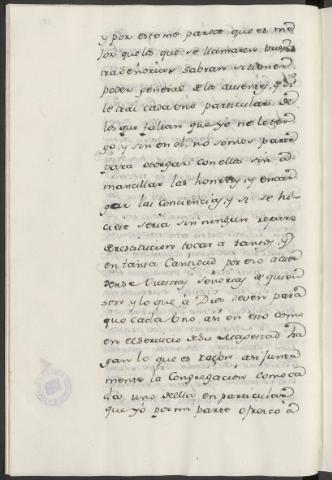 y por esto me parece que es me
jor que los que se llamaren Vues
tras Señorias sabran si tienen
poder general de los ausentes, y si
le trai cada uno particular de
los que faltan que yo no le ten
go y sin en el, no somos parte
para otorgar con ellos sin a
mancillar las honrras y encar
gar las conciencias y si se hi
ciese seria sin ningun reparo
de restitucion tocar a tantos y
en tanta cantidad por eso acuer
dense Vuestras Señorias de quien
son y lo que à Dios deven para
que cada uno, asi en esto como
en el servicio de su Magestad ha
gan lo que es razon asi junta
mente la Congregacion como ca
da uno della en particular
que yó por mi parte ofrezco à